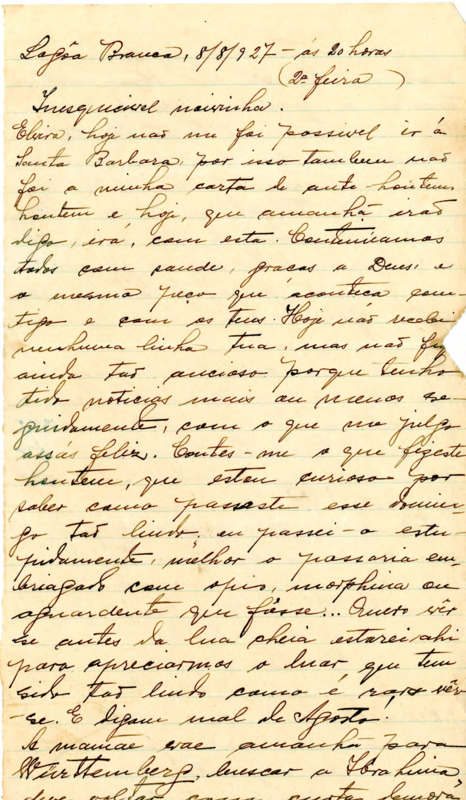 Lagôa Branca, 8/8/927 - ás 20 horas
(2ª feira)
Inesquicivel noivinha.
Elvira, hoje não me foi possivel ir á
Santa Barbara, por isso tambem não
foi a minha carta de ante-hontem,
hontem e hoje, que amanhã irão
digo, irá, com esta. Continuamos
todos com saude, graças a Deus, e
o mesmo peço que aconteça com-
tigo e com os teus. Hoje não recebi
nenhuma linha tua, mas não
ainda tão ancioso porque tenho
tido noticias mais ou menos se-
guidamente, com o que me julgo
assás feliz. Contes-me o que fizeste
hontem, que estou curioso por
saber como passaste esse domin-
go tão lindo, eu passei-o estu-
pidamente, melhor o passaria em-
briagado com opio, morphina ou
aguardente que fôsse... Quero vêr
se antes da lua cheia estarei ahi
para apreciarmos o luar, que tem
sido tão lindo como é raro vêr-
-se. E digam mal de Agosto!
A mamãe vae amanhã para
Württemberg, buscar a Ibrahina,
deve voltar com